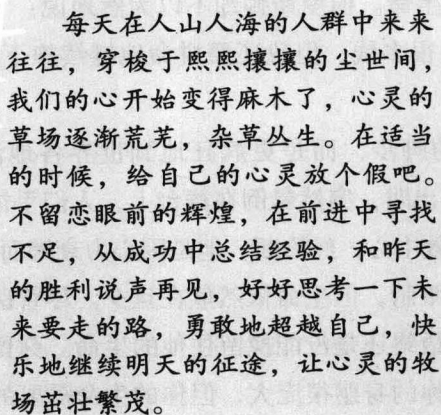 每天在人山人海的人群中来来
往往，穿梭于熙熙攘攘的尘世间，
我们的心开始变得麻木了，心灵的
草场逐渐荒芜，杂草丛生。在适当
的时候，给自己的心灵放个假吧。
不留恋眼前的辉煌，在前进中寻找
不足，从成功中总结经验，和昨天
的胜利说声再见，好好思考一下未
来要走的路，勇敢地超越自己，快
乐地继续明天的征途，让心灵的牧
场茁壮繁茂。